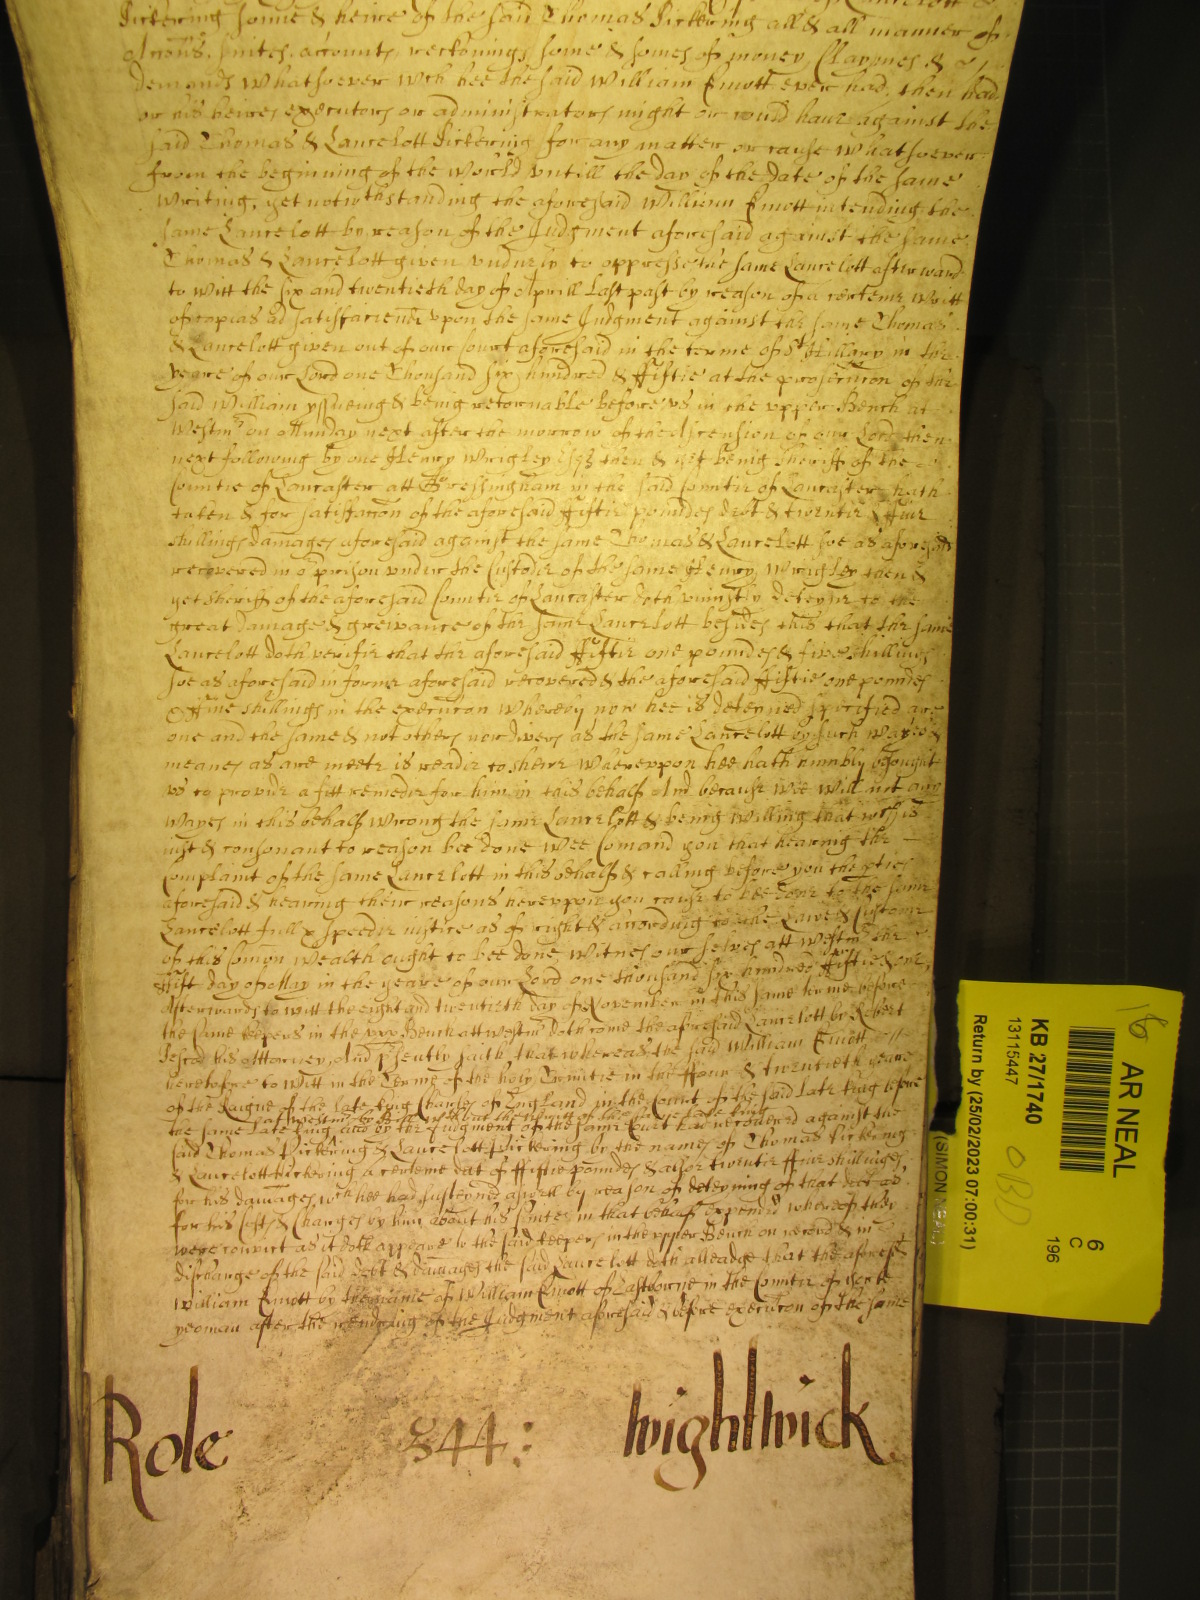 Pickering sonne & heire of the said Thomas Pickering all & all manner of
Accons, suites, accounts, reckonings some & somes of money, Claymes &
demands whatsoever wch hee the said William Emott ever had, then had
or his heires executors or administrators might or could haue against the
said Thomas & Lancelott Pickering for any matter or cause whatsoever
from the beginning of the world vntill the day of the date of the same
writing, yet notwithstanding the aforesaid William Emott intending the
same Lancelott by reason of the Judgment aforesaid against the same
Thomas & Lancelott given vnduely to oppresse the same Lancelott afterward
to witt the six and twentieth day of Aprill last past by reason of a certeine writt
of capias ad satisfaciend vpon the same Judgment against the same Thomas
& Lancelott given out of our Court aforesaid in the terme of St Hillary in the
yeare of our Lord one Thousand six hundred & ffiftie at the prosecucon of the
said William yssueing & being retornable before vs in the vpper Bench at
Westmr on Munday next after the morrow of the Ascension of our Lord then
next following by one Henry Wrigley Esqr then & yet being Sheriff of the
Countie of Lancaster att Gressingham in the said Countie of Lancaster hath
taken & for satisfaccon of the aforesaid ffiftie poundes debt & twentie ffiue
shillings damages aforesaid against the same Thomas & Lancelott soe as aforesaid
recovered in prison vnder the Custodie of the same Henry Wrigley then &
yet Sheriff of the aforesaid Countie of Lancaster doth vniustly deteyne to the
great damage & greivance of the same Lancelott besides this that the same
Lancelott doth verifie that the aforesaid ffiftie one poundes & five shillings
soe as aforesaid in forme aforesaid recovered & the aforesaid ffiftie one poundes
& ffiue shillings in the execucon whereby now hee is deteyned specified are
one and the same & not others nor divers as the same Lancelott by such wayes &
meanes as are meete is readie to shewe Wherevppon hee hath humbly besought
vs to provide a fitt remedie for him in this behalf And because wee will not any
wayes in this behalf wrong the same Lancelott & being willing that wch is
iust & consonant to reason bee done wee Comand you that hearing the
complaint of the same Lancelott in this behalf & calling before you the pties
aforesaid & hearing their reasons herevppon you cause to bee done to the same
Lancelott full & speedie iustice as of right & according to the Lawe & Custome
of this Comon wealth ought to bee done, Witnes our selves att Westmr the
ffirst day of May in the yeare of our Lord one thousand six hundred ffiftie & one,
Afterwards to witt the eight and twentieth day of November in this same terme before
the same keepers in the vpp Bench att Westmr doth come the aforesaid Lancelott by Robert
his Attorney, And psently saith, that whereas the said William Emott
heretofore to witt in the Terme of the holy Trinitie in the ffour & twentieth yeare
of the Raigne of the late king Charles of England in the Court of the said late king before
the same late king att Westmr by and by the Judgment of the same Court had recovered against the
said Thomas Pickering & Lancelott Pickering by the names of Thomas Pickering
& Lancelott Pickering a certeine det of ffiftie poundes & alsoe twentie ffiue shillings,
for his damages wch hee had susteyned aswell by reason of deteyning of that dett as
for his Costs & Charges by him about his suites in that behalf expended whereof they
were convict as it doth appeare to the said keepers in the vpper Bench on record & in
discharge of the said debt & damages the said Lancelott doth alleadge that the aforesd
William Emott by the name of William Emott of in the Countie of yorke
yeoman after the rendring of the Judgment aforesaid & before execucon of the same
Role 844: Wightwick
18
AR NEAL
KB 27/1740
13115447
OBD
6
C
196
Return by (25/02/2023 07:00:31)
(SIMON NEAL)